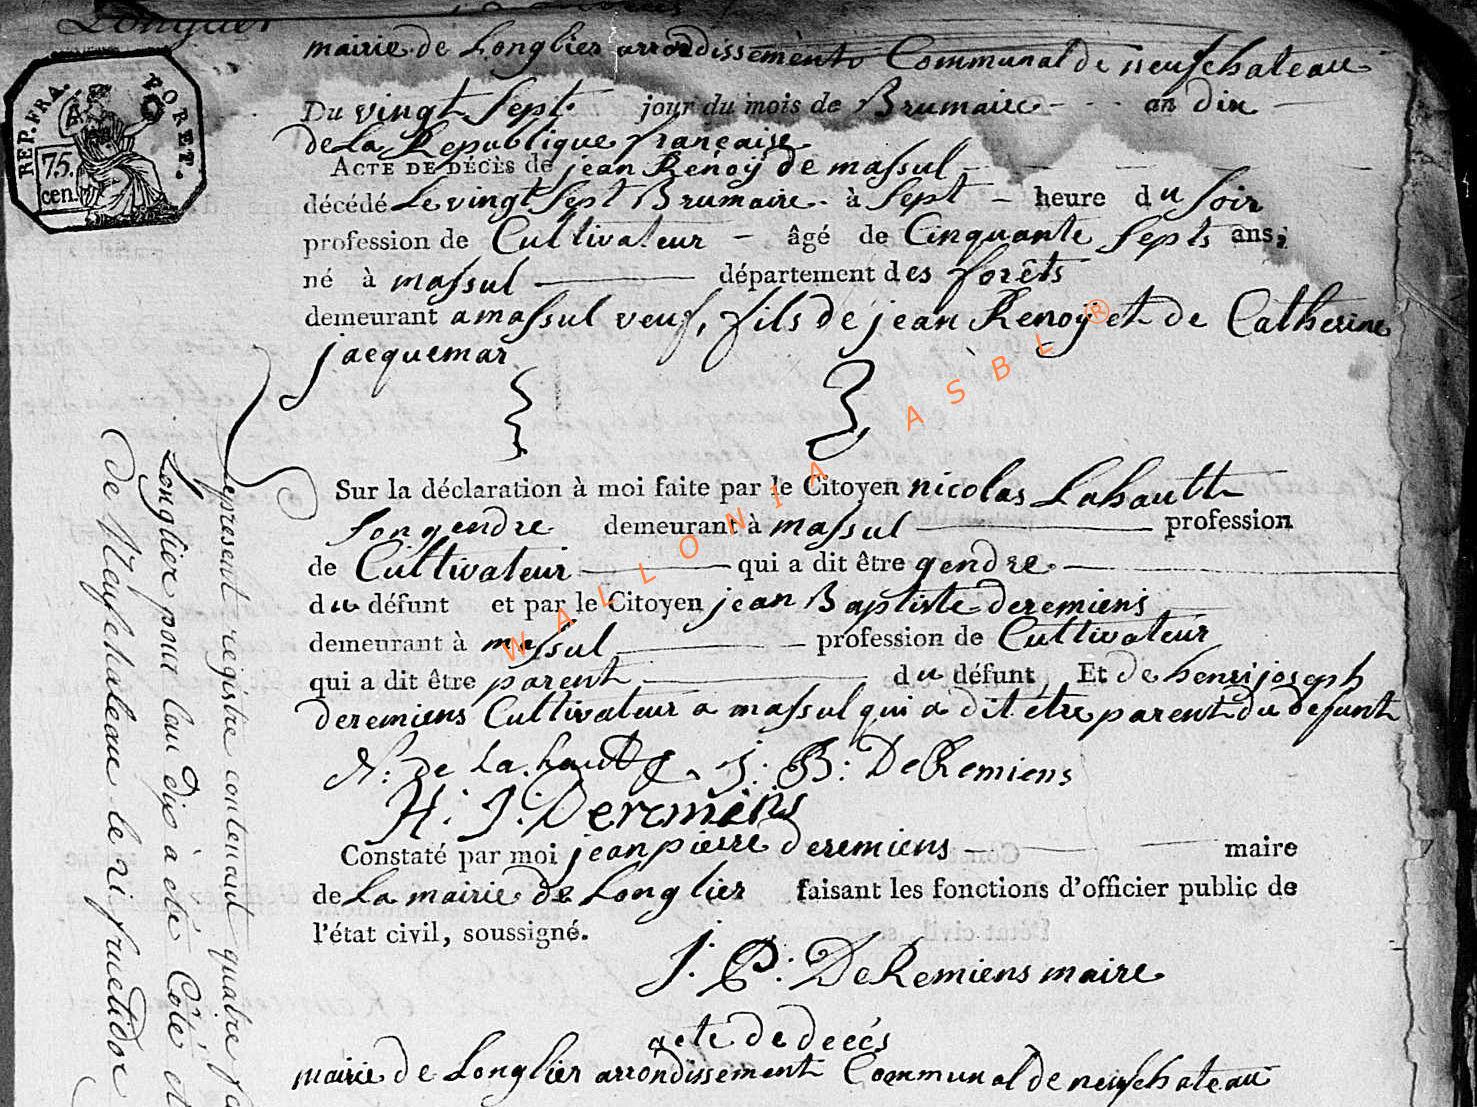 Longlier
mairie de Longlier arrondissement Communal de neufchateau
REP. FRA.
FORET.
75.
cen.
Du vingt Sept jour du mois de Brumaire - - - an dix
de La Republique française
ACTE DE DÉCÈS de jean Renoÿ de massul
décédé Le vingt Sept Brumaire à Sept - heure du Soir
profession de Cultivateur - âgé de Cinquante Septs ans,
né à massul département des forêts
demeurant a massul veuf, fils de jean Renoÿ et de Catherine
jacquemar
Sur la déclaration à moi faite par le Citoyen nicolas Lahautte
Son gendre demeurant à massul profession
de Cultivateur qui a dit être gendre
du défunt et par le Citoyen jean Baptiste deremiens
demeurant à massul profession de Cultivateur
qui a dit être parent du défunt Et de henri joseph
deremiens Cultivateur a massul qui a dit être parent du defunt
N: De La hautte J: B: DeRemiens
H: J: Deremiens
Constaté par moi jean pierre deremiens maire
de La mairie de Longlier faisant les fonctions d'officier public de
l'état civil, soussigné.
J: P: DeRemiens maire
acte de decés
mairie de Longlier arrondissement Communal de neufchateau
Le present registre contenant quatre
Longlier pour l'an dix à eté Coté et
de Neufchateau le 21 fructidor
WALLONIA ASBL ®